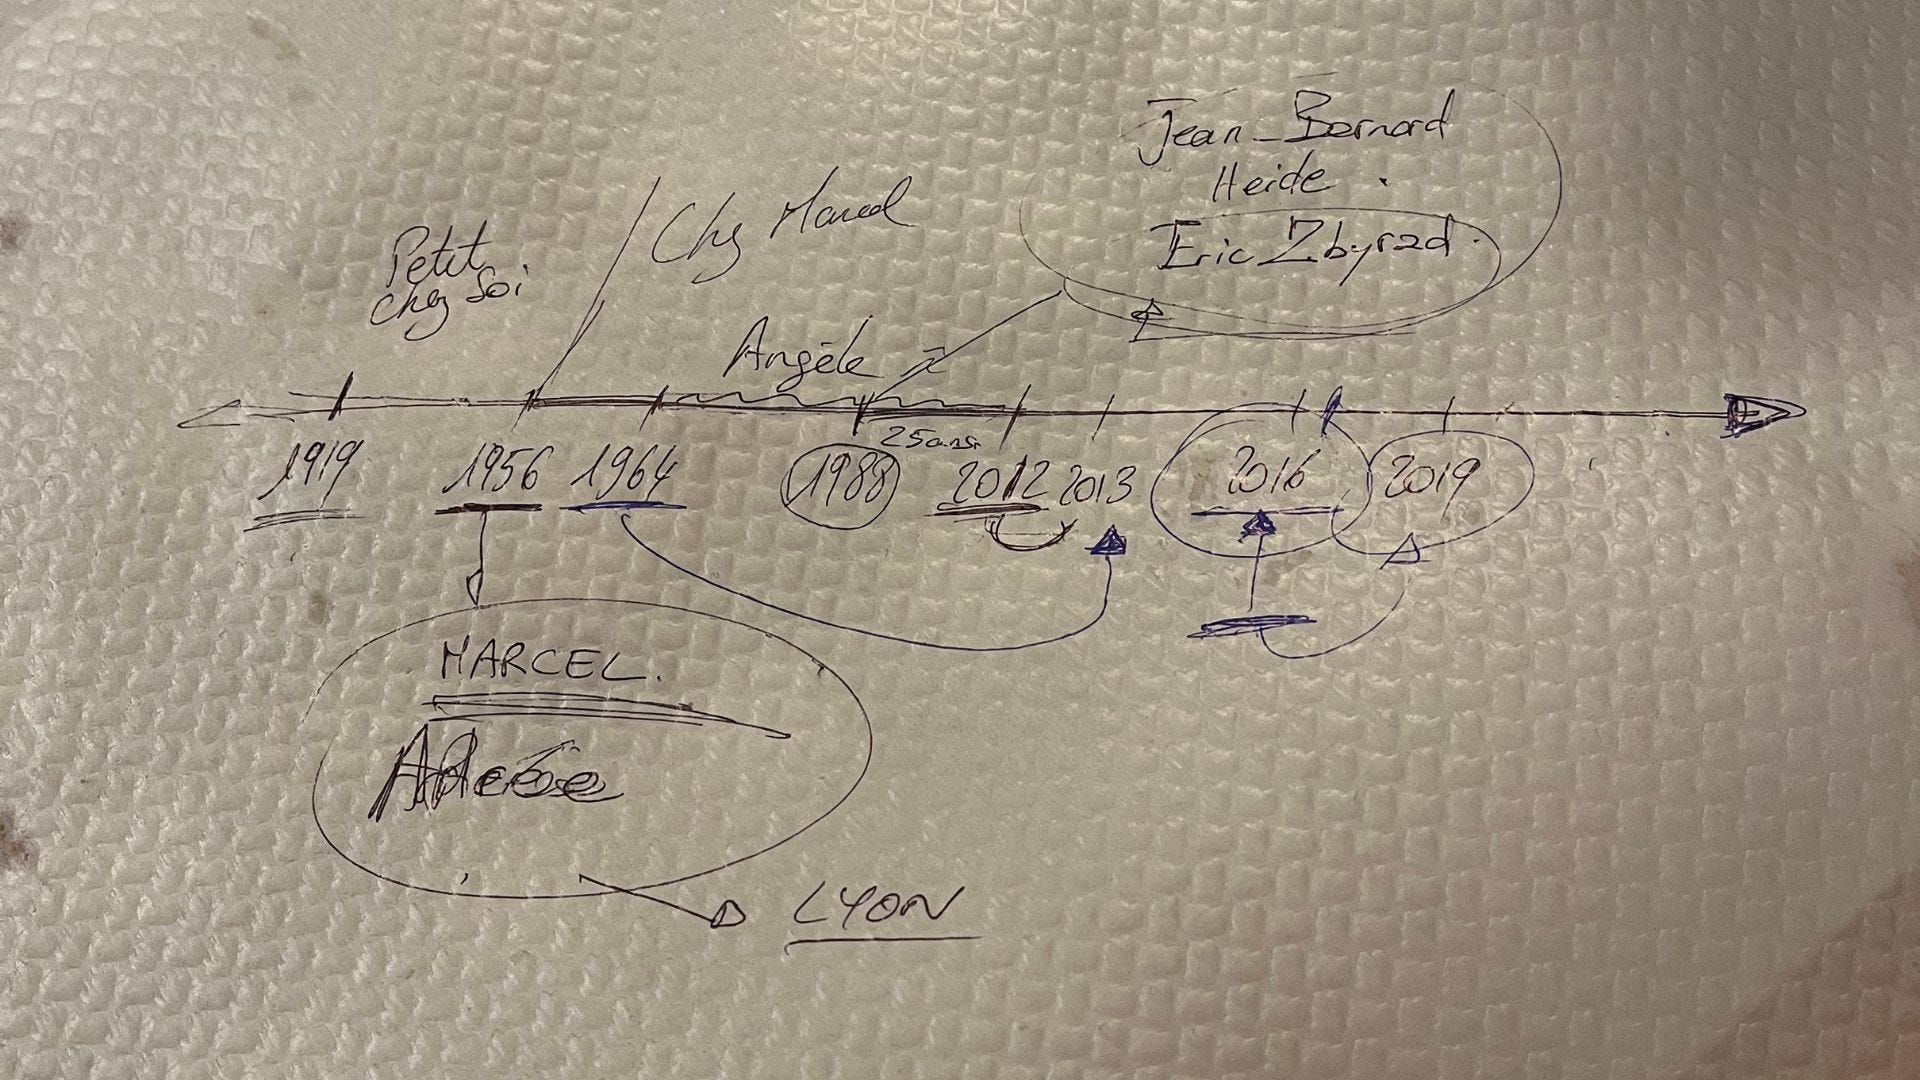 Jean-Bernard
Heide.
Eric Zbyrad.
Petit
chez Soi
Chez Marcel
Angèle
25 ans
1919
1956
1964
1988
2012
2013
2016
2019
MARCEL.
LYON